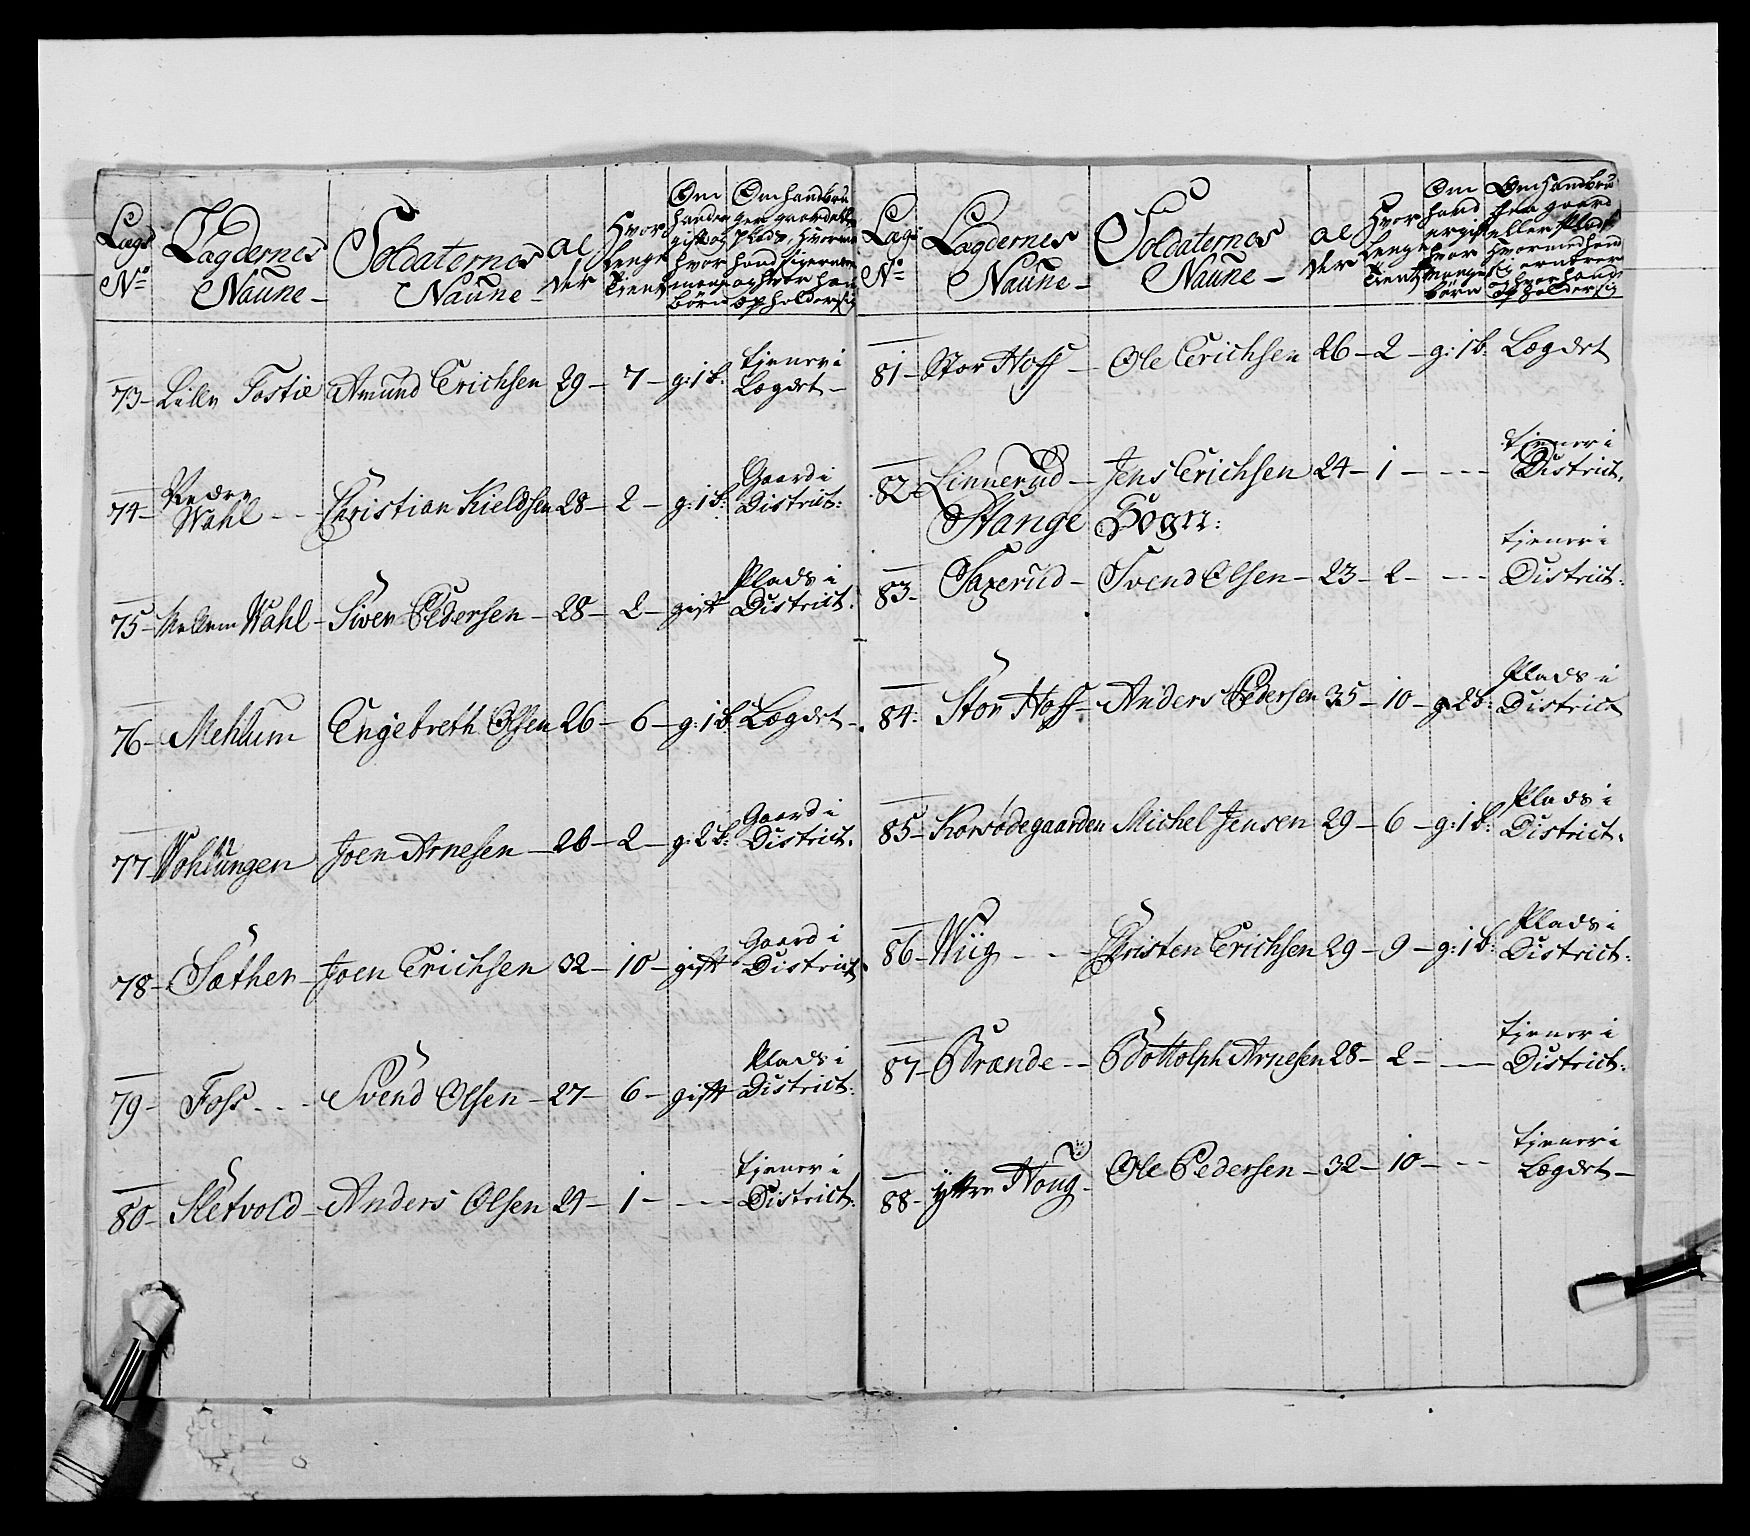 Lægs No Lægdernes Naune Soldaternes Naune Alder Hvor Lenge Tient Om hand er gift og hvor mange börn
73 - Lille Fostie Amund Erichsen 29 - 7 - g: 1 b: tjener i Lægdet -
74 - Nedre Wahl - - Christian Kieldsen 28 - 2 - g: 1 b: Gaard i District:
75 - Mellem Wahl - Siver Pedersen - 28 - 2 - gift Plads i District:
76 - Mehlum Engebreth Olsen 26 - 6 - g: 1 b: Lægdet -
77 Wohlungen Joen Arnesen - 26 - 2 - g: 2 b: Gaard i District:
78 - Sæther - Joen Erichsen 32 - 10 - gift Gaard i District
79 - Foss - - - Svend Olsen - 27 - 6 - gift Plads i District:
80 - Sletvold - Anders Olsen 24 - 1 - - - - tjener i District:
Lægs No Lægdernes Naune - Soldaternes Naune - Alder Hvor Lenge Tient Om hand er gift hvor mange börn
81 - Stor Hoff - Ole Erichsen 26 - 2 - g: 1 b: Lægdet
82 - Linnerud - Jens Erichsen 24 - 1 - - - - tjener i District.
Stange Sogn:
83 - Saxerud - Svend Olsen - 23 - 2 - - - - tjener i District:
84: Stor Hoff - Anders Pedersen 35 - 10 - g 2 b: Plads i District
85 - Korsödegaarden Michel Jensen 29 - 6 - g: 1 b: Plads i District.
86 - Wiig - - - Christen Erichsen 29 - 9 - g: 1 b: Plads i District:
87 - Brænde - - Bottolph Arnesen 28 - 2 - - tjener i District:
88 - ytre Houg - Ole Pedersen - 32 - 10 - - - tjener i Lægdet -